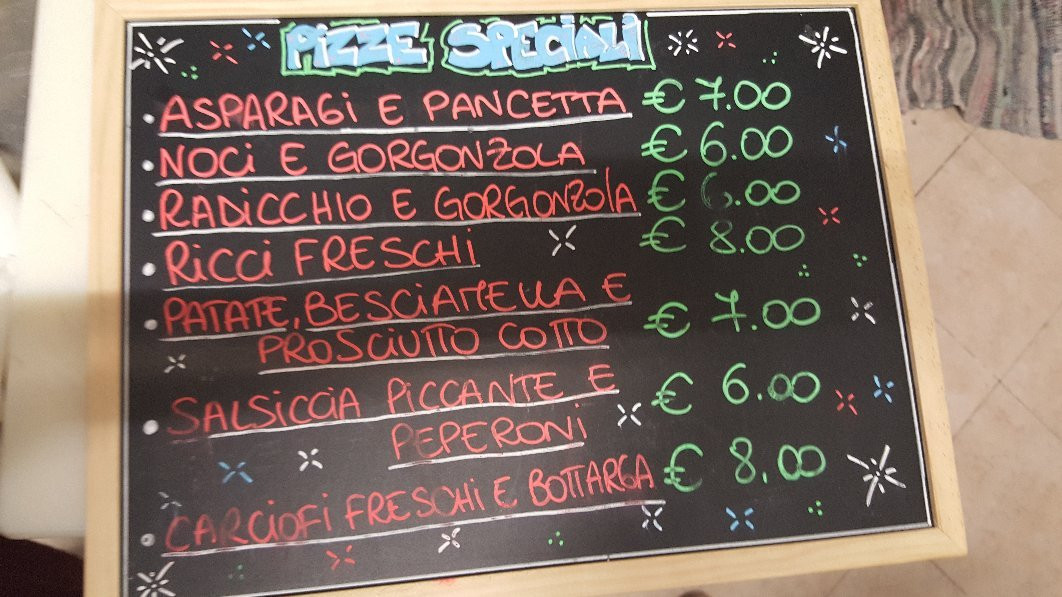 PIZZE SPECIALI
• ASPARAGI E PANCETTA € 7.00
• NOCI E GORGONZOLA € 6.00
• RADICCHIO E GORGONZOLA € 6.00
• RICCI FRESCHI € 8.00
• PATATE, BESCIAMELLA E € 7.00
PROSCIUTTO COTTO
• SALSICCIA PICCANTE E € 6.00
PEPERONI
• CARCIOFI FRESCHI E BOTTARGA € 8.00